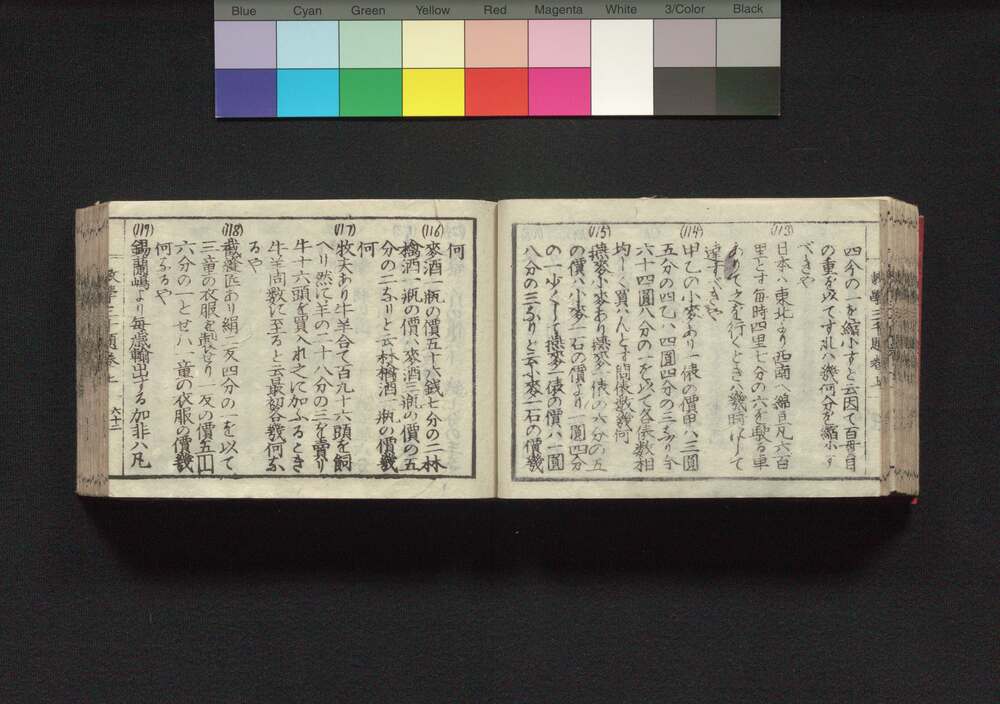 Blue Cyan Green Yellow Red Magenta White 3/Color Black
四分の一を縮小すと云因て百 目
の重を以てすれハ幾何分を縮小す
べきや
(113)
日本ハ東北より西南へ綿亘凡六百
里とす毎時四里七分の六を る車
ありて之を行くときハ幾時にして
達すべきや
(114)
甲乙の小麥あり一俵の價甲ハ三圓
五分の四乙ハ四圓四分の三なり今
六十四圓八分の一を以て各俵数相
均しく買ハんとす問俵数幾何
(115)
燕麥小麥あり燕麥一俵の六分の五
の價ハ小麥一石の價より一圓四分
の一少くして燕麥一俵の價ハ一圓
八分の三なりと云小麥一石の價幾
何
(116)
麥酒一瓶の價五十六錢七分の二林
檎酒一瓶の價ハ麥酒三瓶の價の五
分の二なりと云林檎酒一瓶の價幾
何
(117)
牧夫あり牛羊合て百九十六頭を飼
へり然に羊の二十八分の三を賣り
牛十六頭を買入れ之に加ふるとき
牛羊同数に至ると云最初各幾何な
るや
(118)
裁縫匠あり絹二反四分の一を以て
三童の衣服を製せり一反の價五圓
六分の一とせハ一童の衣服の價幾
何なるや
(119)
錫蘭嶋より毎歳輸出する加非ハ凡
数學三千題卷上
六十二